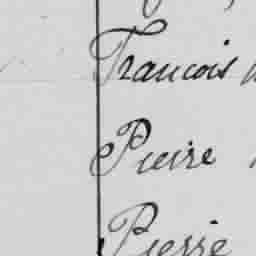 Francois
Pierre
Pierre